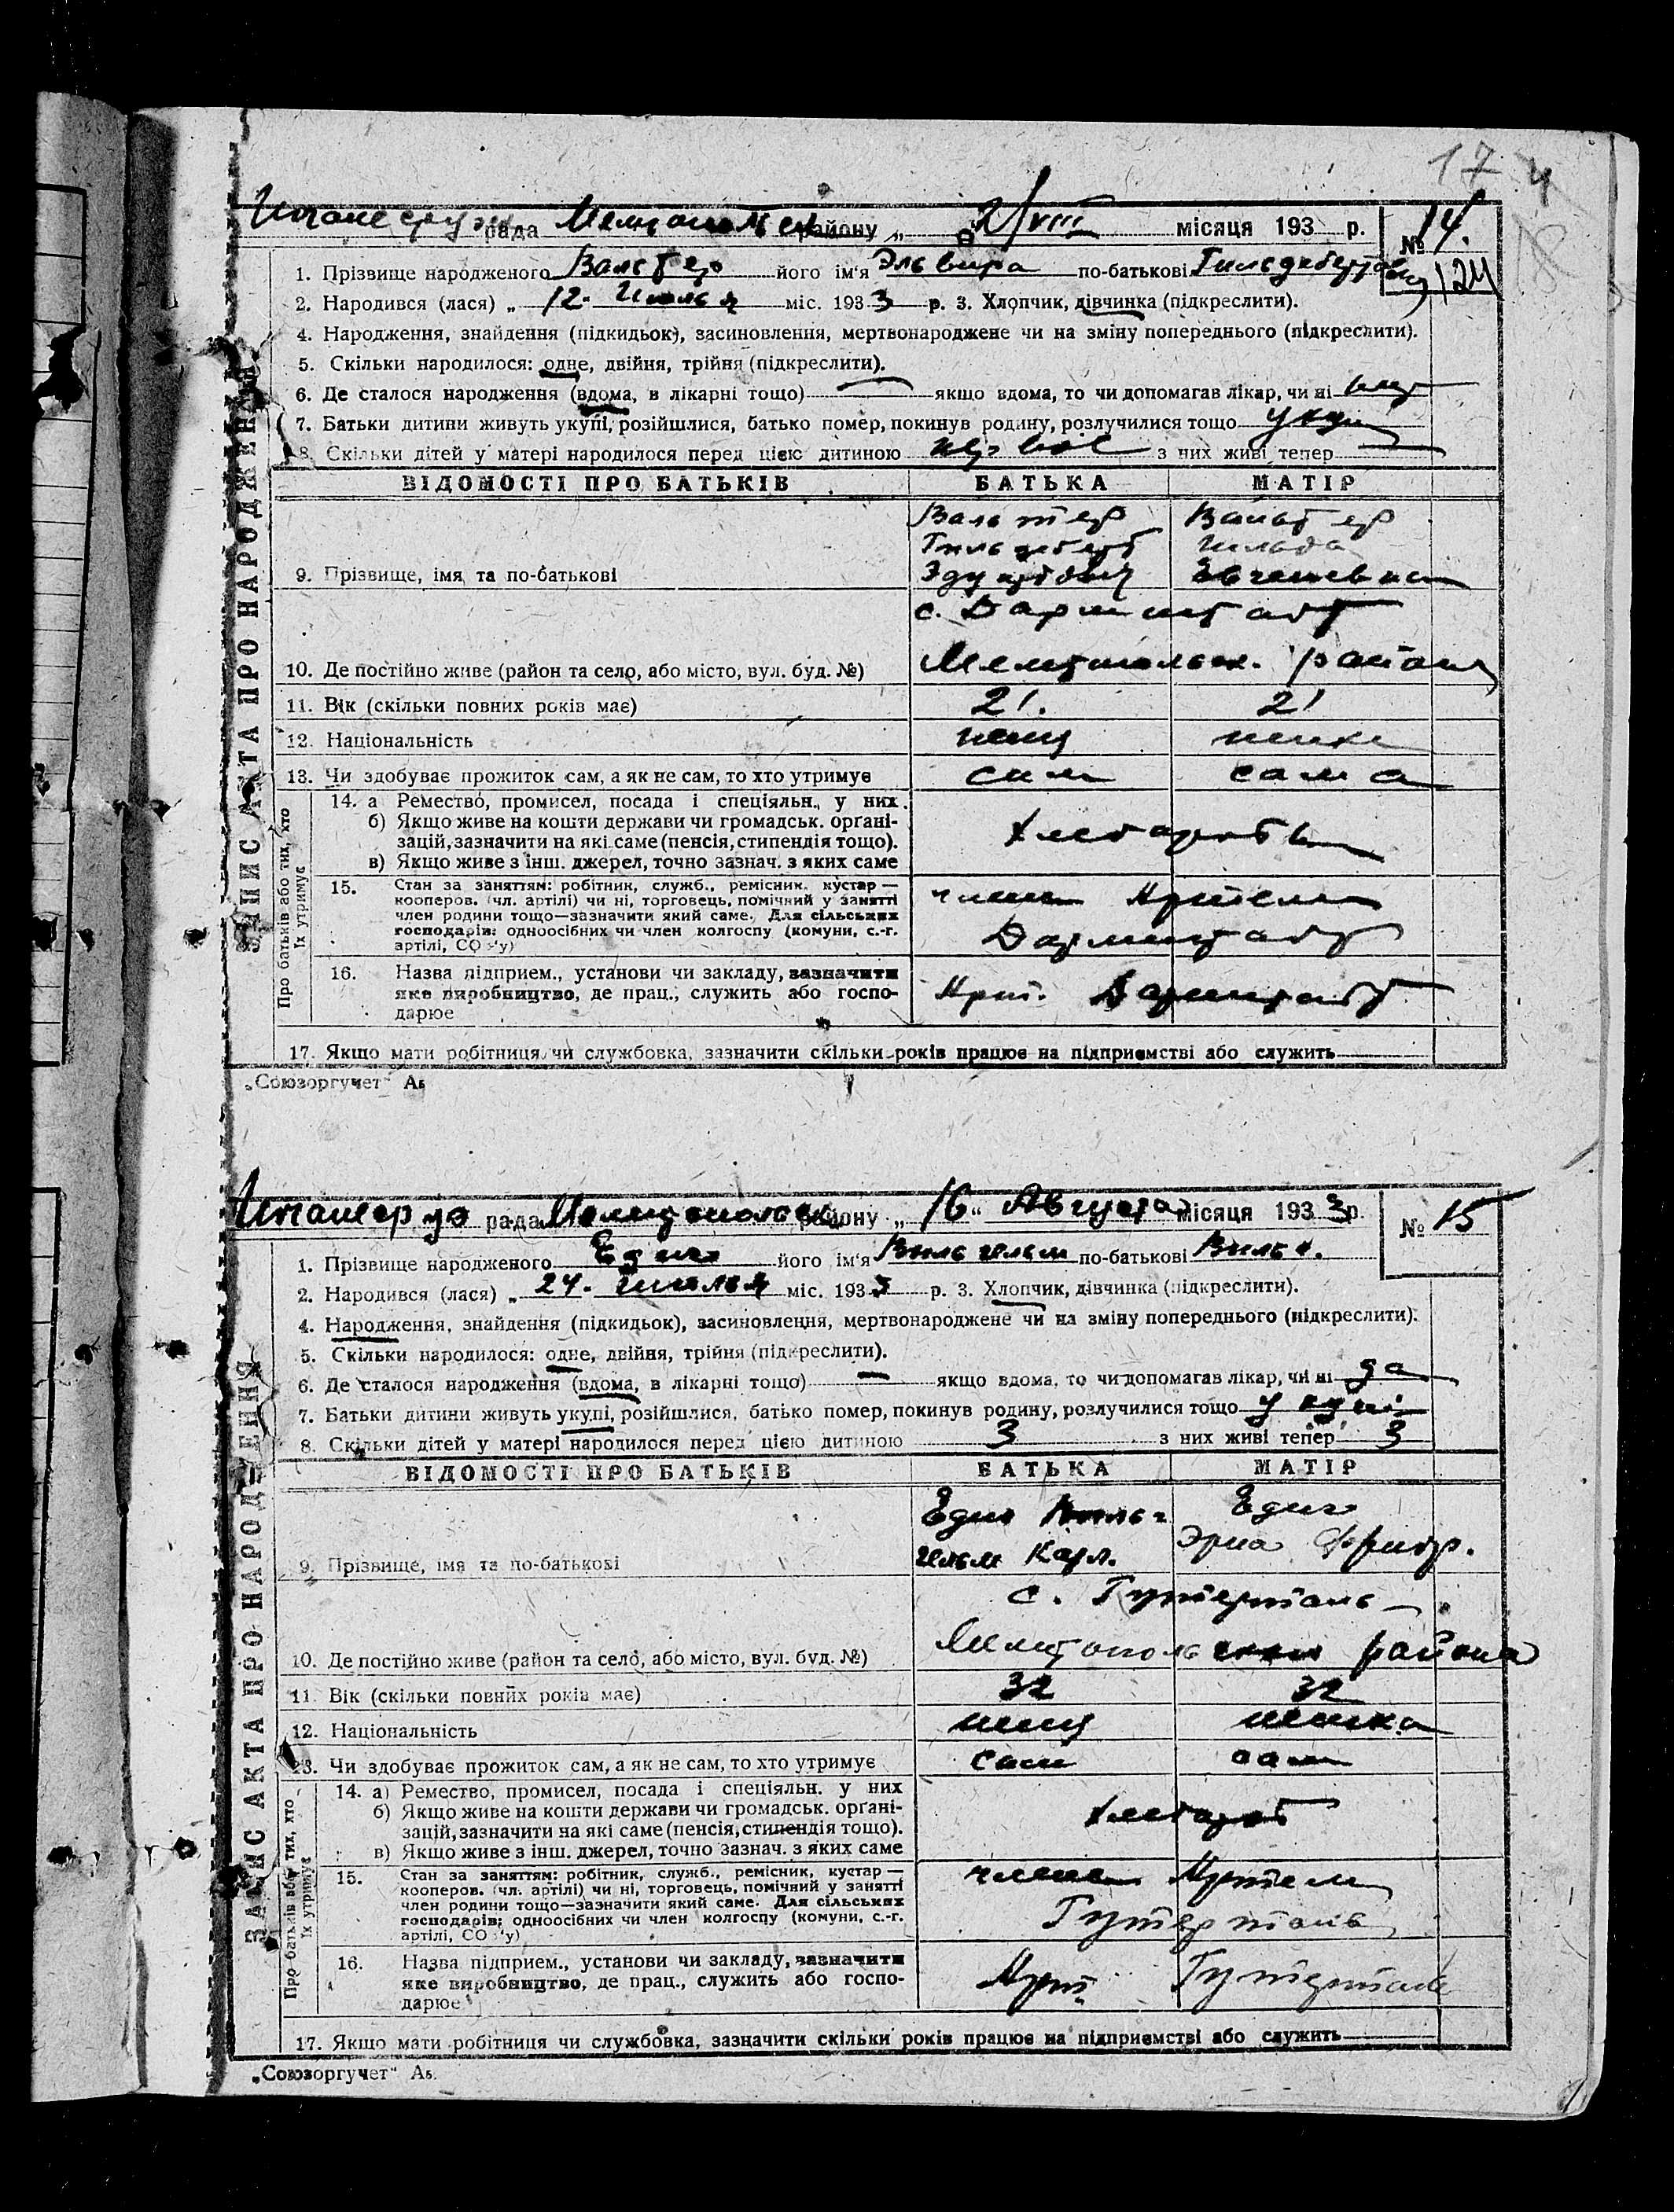 17 4
рада району „ 2/VIII місяця 193 р. № 14.
124
1. Прізвище народженого Вальтер його ім'я Эльвира по-батькові Гильдебертовна
2. Народився (лася) „ 12. Июля міс. 193 3 р. 3. Хлопчик, дівчинка (підкреслити).
4. Народження, знайдення (підкидьок), засиновлення, мертвонароджене чи на зміну попереднього (підкреслити).
5. Скільки народилося: одне, двійня, трійня (підкреслити).
6. Де сталося народження (вдома, в лікарні тощо) якщо вдома, то чи допомагав лікар, чи ні
7. Батьки дитини живуть укупі, розійшлися, батько помер, покинув родину, розлучилися тощо
8. Скільки дітей у матері народилося перед цією дитиною з них живі тепер
ВІДОМОСТІ ПРО БАТЬКІВ БАТЬКА МАТІР
Вальтер Вальтер
Гильдеберт Гильда
9. Прізвище, імя та по-батькові Эдуардович
с. Дармштадт
10. Де постійно живе (район та село, або місто, вул. буд. №) Мелитопольск. района
11. Вік (скільки повних років має) 21. 21
12. Національність немц немка
13. Чи здобуває прожиток сам, а як не сам, то хто утримує сам сама
ЗАПИС АКТА ПРО НАРОДЖЕННЯ
Про батьків або тих, хто їх утримує
14. а Ремество, промисел, посада і спеціяльн. у них.
б) Якщо живе на кошти держави чи громадськ. органі-
зацій, зазначити на які саме (пенсія, стипендія тощо).
в) Якщо живе з інш. джерел, точно зазнач. з яких саме
15. Стан за заняттям: робітник, служб., ремісник, кустар —
кооперов. (чл. артілі) чи ні, торговець, помічний у занятті
член родини тощо—зазначити який саме. Для сільських
господарів: одноосібних чи член колгоспу (комуни, с.-г.
артілі, СОЗ'у)
члены Артели
Дармштадт
16. Назва підприєм., установи чи закладу, зазначити
яке виробництво, де прац., служить або госпо-
дарює
Арт. Дармштадт
17. Якщо мати робітниця чи службовка, зазначити скільки років працює на підприємстві або служить
„Союзоргучет" А5
рада району „ 16 " Августа місяця 193 3 р. № 15
1. Прізвище народженого Едиг його ім'я Вильгельм по-батькові Вильг.
2. Народився (лася) „ 24. Июля міс. 193 3 р. 3. Хлопчик, дівчинка (підкреслити).
4. Народження, знайдення (підкидьок), засиновлення, мертвонароджене чи на зміну попереднього (підкреслити).
5. Скільки народилося: одне, двійня, трійня (підкреслити).
6. Де сталося народження (вдома, в лікарні тощо) — якщо вдома, то чи допомагав лікар, чи ні да
7. Батьки дитини живуть укупі, розійшлися, батько помер, покинув родину, розлучилися тощо укупі
8. Скільки дітей у матері народилося перед цією дитиною 3 з них живі тепер 3
ВІДОМОСТІ ПРО БАТЬКІВ БАТЬКА МАТІР
Едиг Виль- Едиг
9. Прізвище, імя та по-батькові гельм Карл. Эрна Фридр.
с. Гутерталь
10. Де постійно живе (район та село, або місто, вул. буд. №) Мелитопольского района
11. Вік (скільки повних років має) 32 32
12. Національність немц немка
13. Чи здобуває прожиток сам, а як не сам, то хто утримує сам сам
ЗАПИС АКТА ПРО НАРОДЖЕННЯ
Про батьків або тих, хто їх утримує
14. а) Ремество, промисел, посада і спеціяльн. у них
б) Якщо живе на кошти держави чи громадськ. органі-
зацій, зазначити на які саме (пенсія, стипендія тощо).
в) Якщо живе з інш. джерел, точно зазнач. з яких саме
хлебороб
15. Стан за заняттям: робітник, служб., ремісник, кустар —
кооперов. (чл. артілі) чи ні, торговець, помічний у занятті
член родини тощо—зазначити який саме. Для сільських
господарів: одноосібних чи член колгоспу (комуни, с.-г.
артілі, СОЗ'у)
члены Артели
Гутерталь
16. Назва підприєм., установи чи закладу, зазначити
яке виробництво, де прац., служить або госпо-
дарює
Арт. Гутерталь
17. Якщо мати робітниця чи службовка, зазначити скільки років працює на підприємстві або служить
„Союзоргучет" А5.